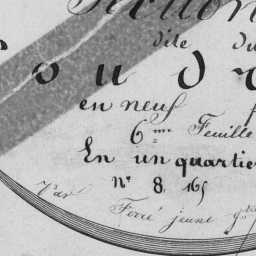 dite du
oudr
en neuf
6me Feuille
En un quartie
No 8. 165
Par
Ferré jeune gre